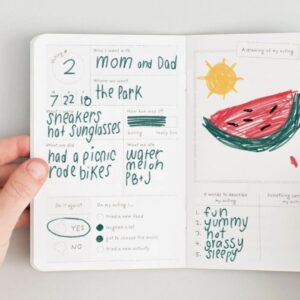 outing #
2
Who I went with
mom and Dad
Where we went
the Park
7 22 18
sneakers
hat sunglasses
How fun was it?
boring
really fun
What we did
had a picnic
rode bikes
What we ate
water
melon
PB+J
Do it again?
YES
NO
On my outing I...
tried a new food
laughed a lot
got to choose the music
tried a new activity
A drawing of my outing
5 words to describe
my outing
1. fun
2. yummy
3. hot
4. grassy
5. sleepy
Something